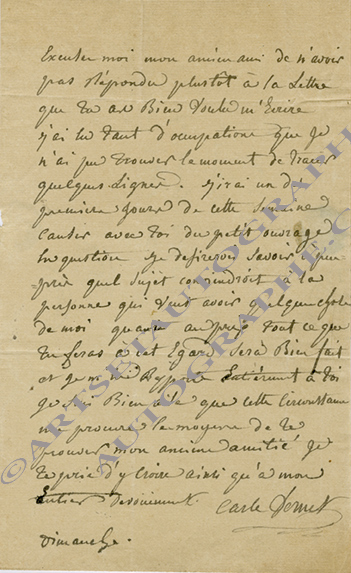 Excuser moi mon ancien ami de n'avoir
pas répondu plustôt à la Lettre
que tu as Bien Voulu m'Ecrire
j'ai eu tant d'ocupations que je
n'ai pu trouver le moment de tracer
quelques lignes. j'irai un des
premiers jours de cette semaine
causer avec toi du petit ouvrage
En question je desirerois savoir à peu
près quel sujet conviendroit à la
personne qui veut avoir quelque chose
de moi quant au prix tout ce que
tu feras à cet Egard sera Bien fait
et je m'en Rapporte Entièrement à toi
je suis Bien aise que cette circonstance
me procure le moyen de te
prouver mon ancienne amitié je
te prie d'y Croire ainsi qu'à mon
Entier Devouement
Carle Vernet
Dimanche.
©ARTSETAUTOGRAPHE.COM
AUTOGRAPHE